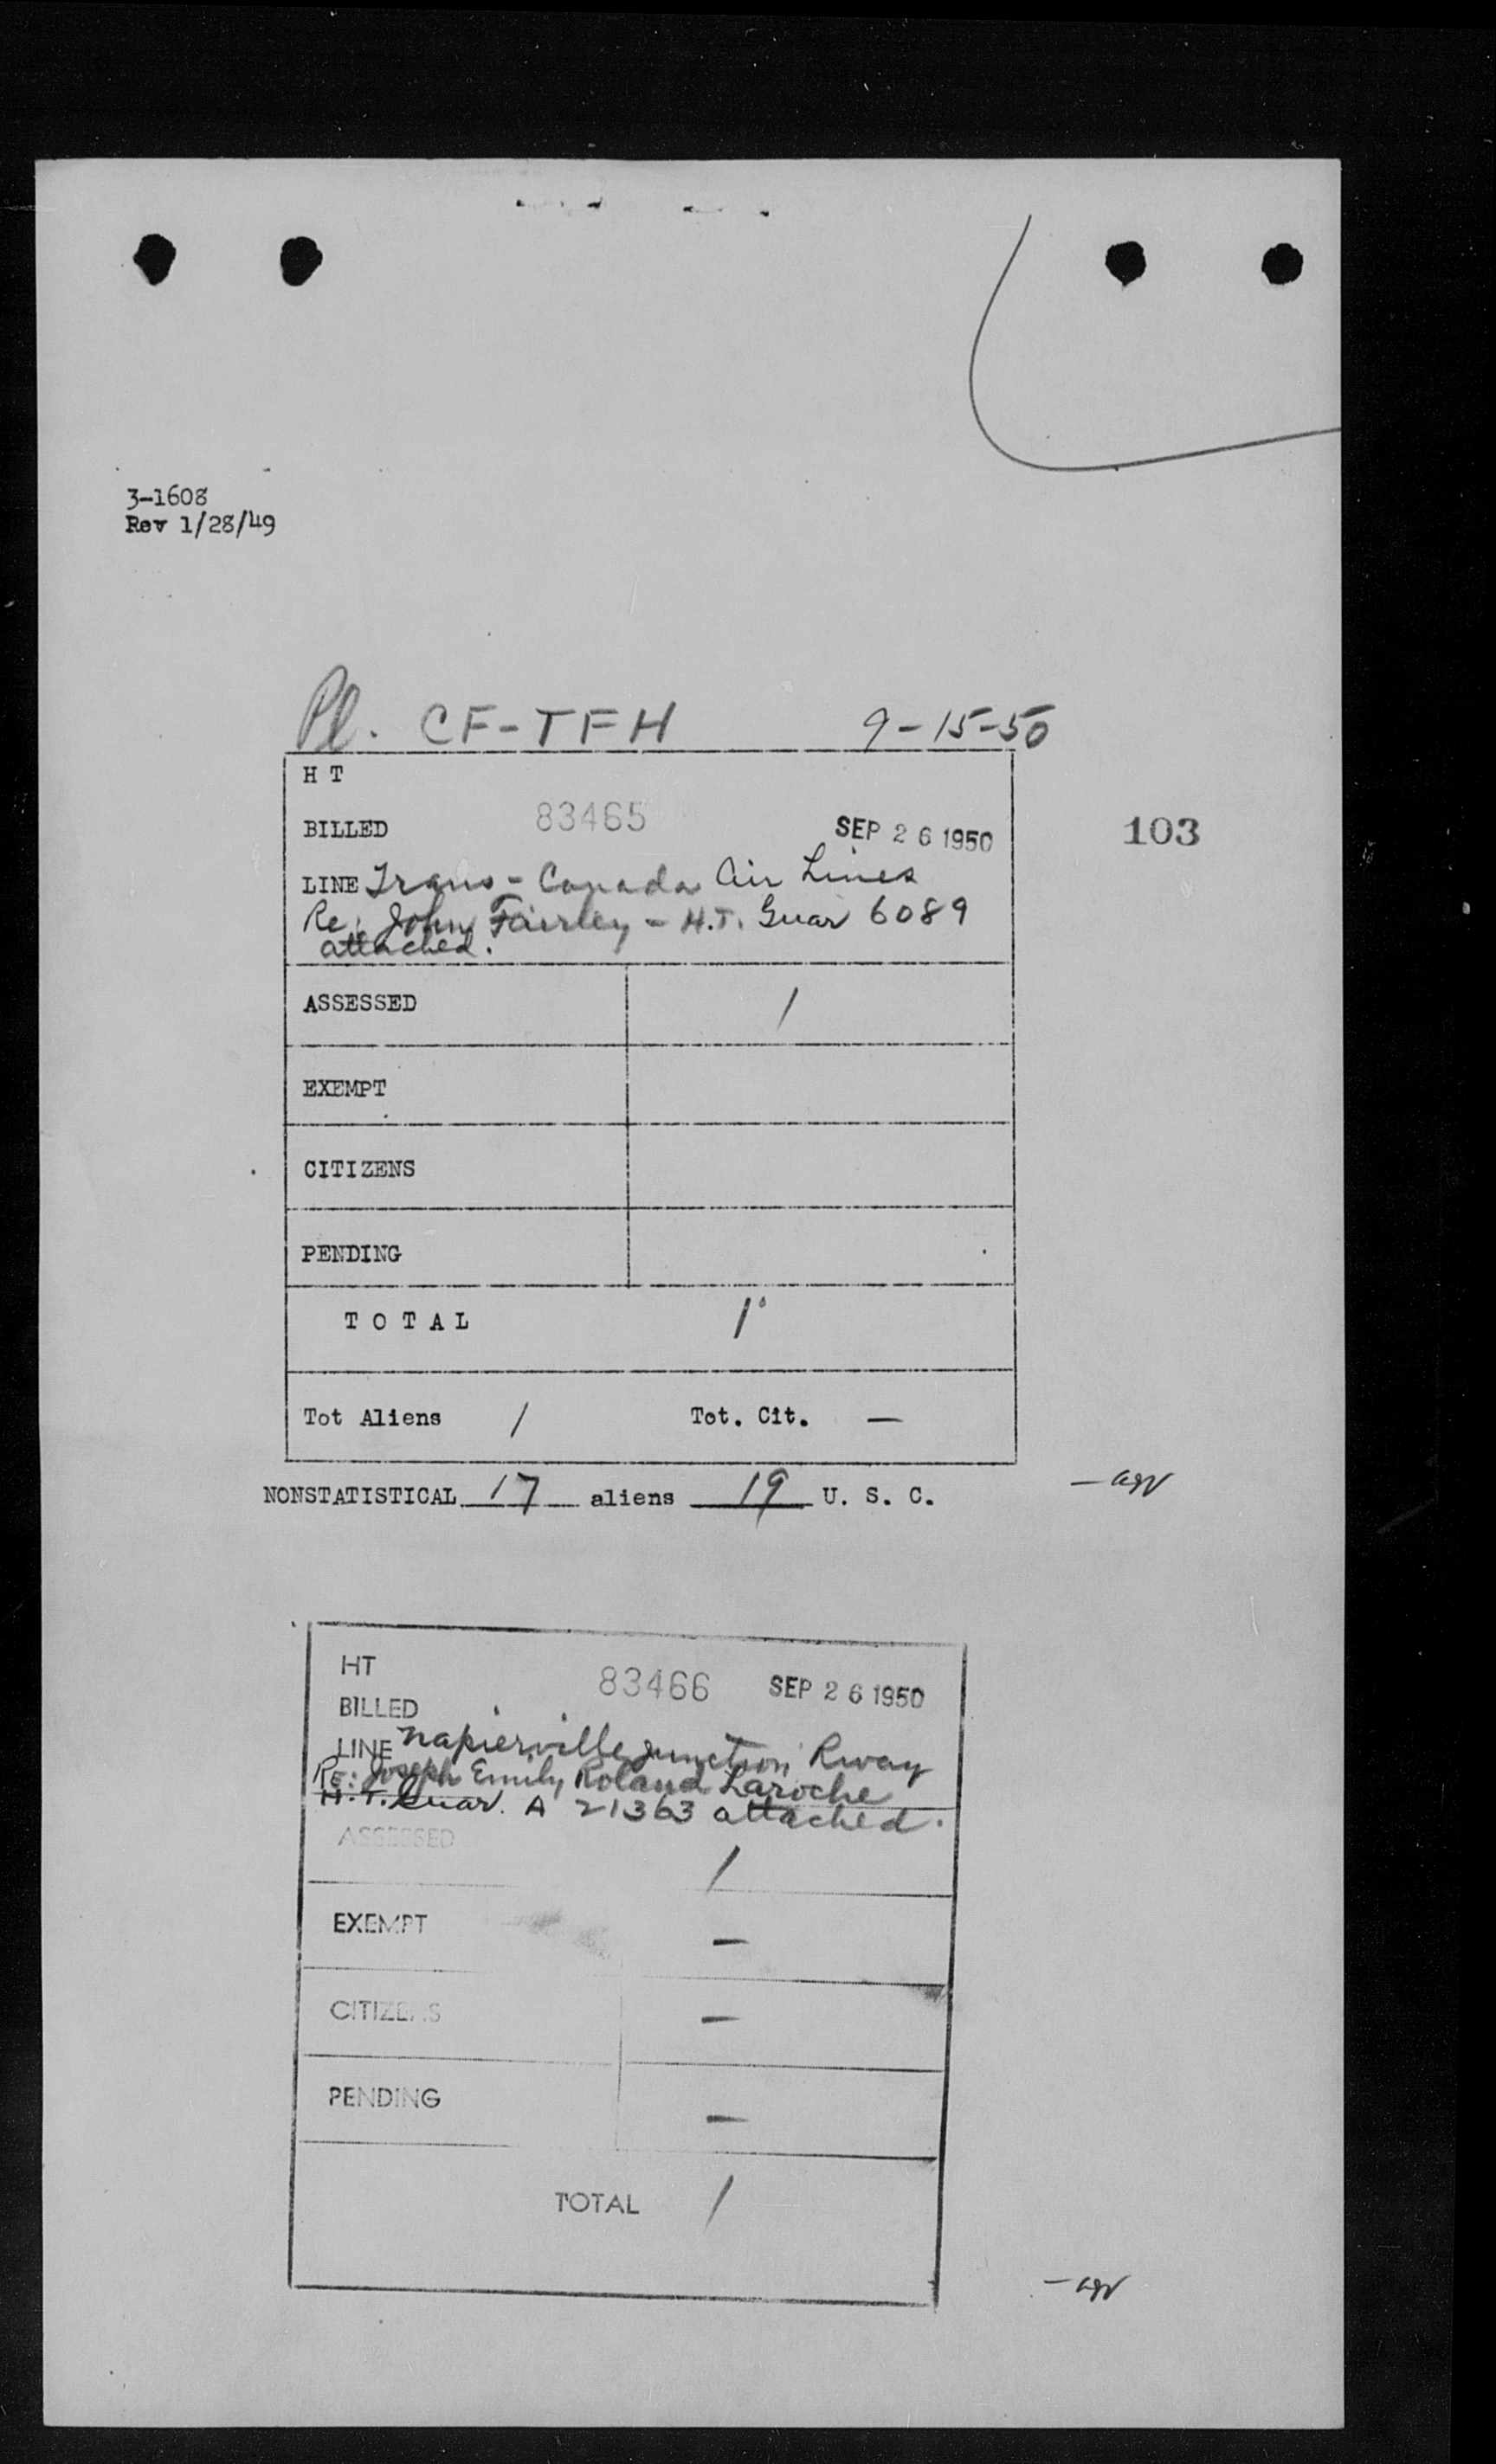 3-1608
Rev 1/28/49
Pl. CF-TFH 9-15-50
H T
BILLED 83465 SEP 26 1950
103
LINE Trans-Canada Air Lines
Re: John Fairley - H.T. Guar 6089
attached.
ASSESSED 1
EXEMPT
CITIZENS
PENDING
TOTAL 1
Tot Aliens 1 Tot. Cit. —
NONSTATISTICAL 17 aliens 19 U. S. C.
HT
83466 SEP 26 1950
BILLED
LINE Napierville Junction Rway
Re: Joseph Emily Roland Laroche
H.T. Guar. A 21363 attached.
ASSESSED 1
EXEMPT —
CITIZENS —
PENDING —
TOTAL 1